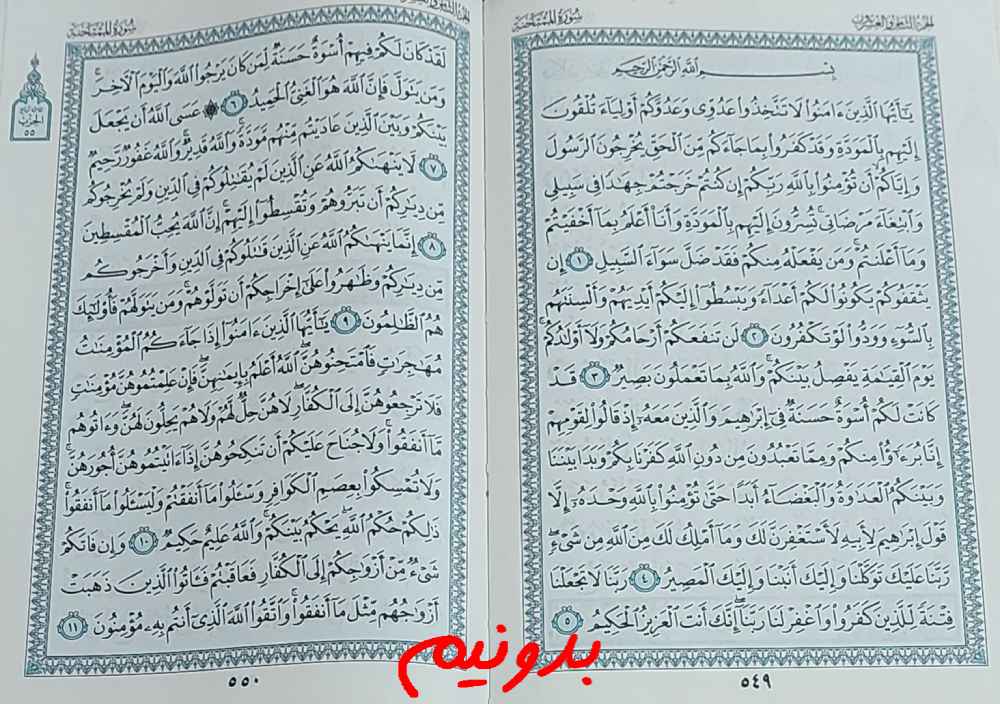 الجزء الثامن والعشرون
سورة الممتحنة
بِسْمِ اللَّهِ الرَّحْمَٰنِ الرَّحِيمِ
يَٰٓأَيُّهَا ٱلَّذِينَ ءَامَنُوا۟ لَا تَتَّخِذُوا۟ عَدُوِّى وَعَدُوَّكُمْ أَوْلِيَآءَ تُلْقُونَ
إِلَيْهِم بِٱلْمَوَدَّةِ وَقَدْ كَفَرُوا۟ بِمَا جَآءَكُم مِّنَ ٱلْحَقِّ يُخْرِجُونَ ٱلرَّسُولَ
وَإِيَّاكُمْ أَن تُؤْمِنُوا۟ بِٱللَّهِ رَبِّكُمْ إِن كُنتُمْ خَرَجْتُمْ جِهَٰدًا فِى سَبِيلِى
وَٱبْتِغَآءَ مَرْضَاتِى تُسِرُّونَ إِلَيْهِم بِٱلْمَوَدَّةِ وَأَنَا۠ أَعْلَمُ بِمَآ أَخْفَيْتُمْ
وَمَآ أَعْلَنتُمْ وَمَن يَفْعَلْهُ مِنكُمْ فَقَدْ ضَلَّ سَوَآءَ ٱلسَّبِيلِ ١ إِن
يَثْقَفُوكُمْ يَكُونُوا۟ لَكُمْ أَعْدَآءً وَيَبْسُطُوٓا۟ إِلَيْكُمْ أَيْدِيَهُمْ وَأَلْسِنَتَهُم
بِٱلسُّوٓءِ وَوَدُّوا۟ لَوْ تَكْفُرُونَ ٢ لَن تَنفَعَكُمْ أَرْحَامُكُمْ وَلَآ أَوْلَٰدُكُمْ
يَوْمَ ٱلْقِيَٰمَةِ يَفْصِلُ بَيْنَكُمْ وَٱللَّهُ بِمَا تَعْمَلُونَ بَصِيرٌ ٣ قَدْ
كَانَتْ لَكُمْ أُسْوَةٌ حَسَنَةٌ فِىٓ إِبْرَٰهِيمَ وَٱلَّذِينَ مَعَهُۥٓ إِذْ قَالُوا۟ لِقَوْمِهِمْ
إِنَّا بُرَءَٰٓؤُا۟ مِنكُمْ وَمِمَّا تَعْبُدُونَ مِن دُونِ ٱللَّهِ كَفَرْنَا بِكُمْ وَبَدَا بَيْنَنَا
وَبَيْنَكُمُ ٱلْعَدَٰوَةُ وَٱلْبَغْضَآءُ أَبَدًا حَتَّىٰ تُؤْمِنُوا۟ بِٱللَّهِ وَحْدَهُۥٓ إِلَّا
قَوْلَ إِبْرَٰهِيمَ لِأَبِيهِ لَأَسْتَغْفِرَنَّ لَكَ وَمَآ أَمْلِكُ لَكَ مِنَ ٱللَّهِ مِن شَىْءٍ
رَّبَّنَا عَلَيْكَ تَوَكَّلْنَا وَإِلَيْكَ أَنَبْنَا وَإِلَيْكَ ٱلْمَصِيرُ ٤ رَبَّنَا لَا تَجْعَلْنَا
فِتْنَةً لِّلَّذِينَ كَفَرُوا۟ وَٱغْفِرْ لَنَا رَبَّنَآ إِنَّكَ أَنتَ ٱلْعَزِيزُ ٱلْحَكِيمُ ٥
٥٤٩
سورة الممتحنة
لَقَدْ كَانَ لَكُمْ فِيهِمْ أُسْوَةٌ حَسَنَةٌ لِّمَن كَانَ يَرْجُوا۟ ٱللَّهَ وَٱلْيَوْمَ ٱلْءَاخِرَ
وَمَن يَتَوَلَّ فَإِنَّ ٱللَّهَ هُوَ ٱلْغَنِىُّ ٱلْحَمِيدُ ٦ ۞ عَسَى ٱللَّهُ أَن يَجْعَلَ
بَيْنَكُمْ وَبَيْنَ ٱلَّذِينَ عَادَيْتُم مِّنْهُم مَّوَدَّةً وَٱللَّهُ قَدِيرٌ وَٱللَّهُ غَفُورٌ رَّحِيمٌ
٧ لَّا يَنْهَىٰكُمُ ٱللَّهُ عَنِ ٱلَّذِينَ لَمْ يُقَٰتِلُوكُمْ فِى ٱلدِّينِ وَلَمْ يُخْرِجُوكُم
مِّن دِيَٰرِكُمْ أَن تَبَرُّوهُمْ وَتُقْسِطُوٓا۟ إِلَيْهِمْ إِنَّ ٱللَّهَ يُحِبُّ ٱلْمُقْسِطِينَ
٨ إِنَّمَا يَنْهَىٰكُمُ ٱللَّهُ عَنِ ٱلَّذِينَ قَٰتَلُوكُمْ فِى ٱلدِّينِ وَأَخْرَجُوكُم
مِّن دِيَٰرِكُمْ وَظَٰهَرُوا۟ عَلَىٰٓ إِخْرَاجِكُمْ أَن تَوَلَّوْهُمْ وَمَن يَتَوَلَّهُمْ فَأُو۟لَٰٓئِكَ
هُمُ ٱلظَّٰلِمُونَ ٩ يَٰٓأَيُّهَا ٱلَّذِينَ ءَامَنُوٓا۟ إِذَا جَآءَكُمُ ٱلْمُؤْمِنَٰتُ
مُهَٰجِرَٰتٍ فَٱمْتَحِنُوهُنَّ ٱللَّهُ أَعْلَمُ بِإِيمَٰنِهِنَّ فَإِنْ عَلِمْتُمُوهُنَّ مُؤْمِنَٰتٍ
فَلَا تَرْجِعُوهُنَّ إِلَى ٱلْكُفَّارِ لَا هُنَّ حِلٌّ لَّهُمْ وَلَا هُمْ يَحِلُّونَ لَهُنَّ وَءَاتُوهُم
مَّآ أَنفَقُوا۟ وَلَا جُنَاحَ عَلَيْكُمْ أَن تَنكِحُوهُنَّ إِذَآ ءَاتَيْتُمُوهُنَّ أُجُورَهُنَّ
وَلَا تُمْسِكُوا۟ بِعِصَمِ ٱلْكَوَافِرِ وَسْـَٔلُوا۟ مَآ أَنفَقْتُمْ وَلْيَسْـَٔلُوا۟ مَآ أَنفَقُوا۟
ذَٰلِكُمْ حُكْمُ ٱللَّهِ يَحْكُمُ بَيْنَكُمْ وَٱللَّهُ عَلِيمٌ حَكِيمٌ ١٠ وَإِن فَاتَكُمْ
شَىْءٌ مِّنْ أَزْوَٰجِكُمْ إِلَى ٱلْكُفَّارِ فَعَاقَبْتُمْ فَـَٔاتُوا۟ ٱلَّذِينَ ذَهَبَتْ
أَزْوَٰجُهُم مِّثْلَ مَآ أَنفَقُوا۟ وَٱتَّقُوا۟ ٱللَّهَ ٱلَّذِىٓ أَنتُم بِهِۦ مُؤْمِنُونَ ١١
٥٥٠
الحزب
٥٥
بدونیم